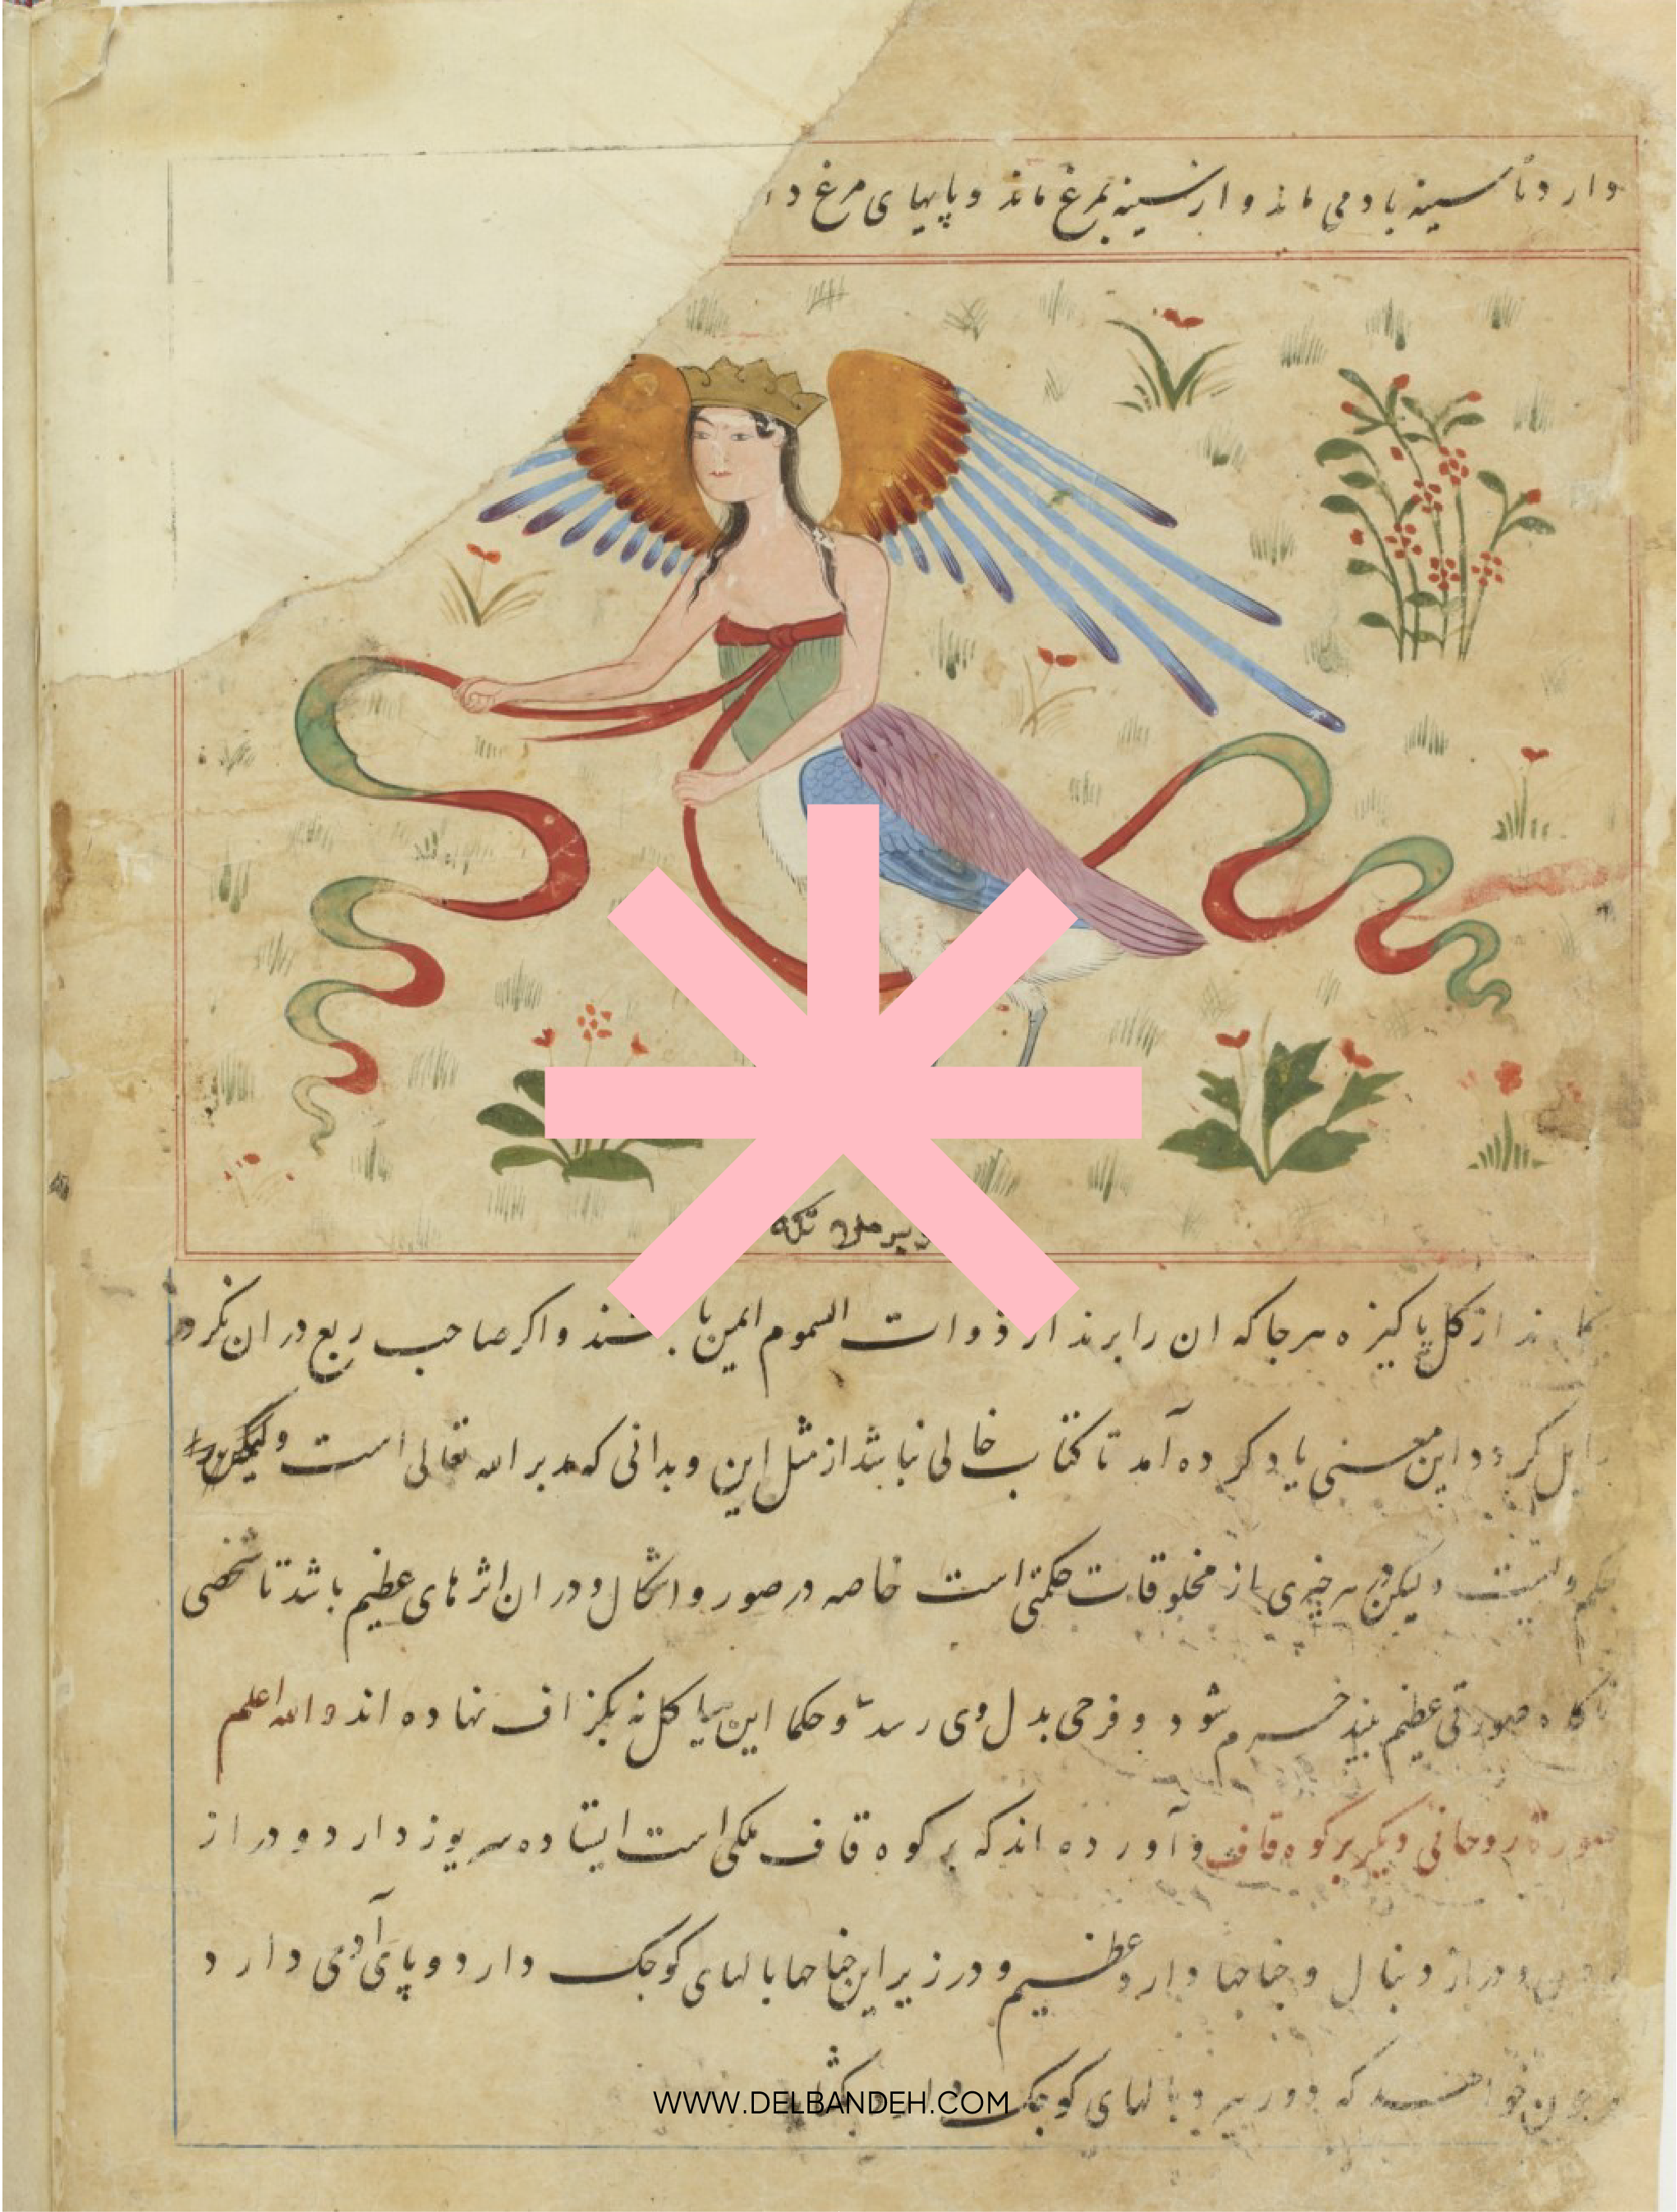 دارد تا سینه بادمی ماند و از سینه بمرغ ماند و پایهای مرغ دا
ند از کل پاکیزه هرجا که ان را برند از ذوات السموم ایمن باشند و اکر صاحب ربع در ان نکرد
کردد این معنی یاد کرده آمد تا کتاب خالی نباشد از مثل این و بدانی که مدبر الله تعالی است ولیکن
ولیکن هر چیزی از مخلوقات حکمتی است خاصه در صور و اشکال و در ان اثرهای عظیم باشد تا شخصی
ناکاه صورتی عظیم بیند خرم شود و فرحی بدل وی رسد و حکما این هیاکل نه بکزاف نهاده اند والله اعلم
صورة روحانی دیکر بر کوه قاف و آورده اند که بر کوه قاف ملکی است ایستاده سر یوز دارد و دراز
و دراز دنبال و جناحها دارد عظیم و در زیر این جناحها بالهای کوجک دارد و پای آدمی دارد
که دور بالهای کوجک
WWW.DELBANDEH.COM